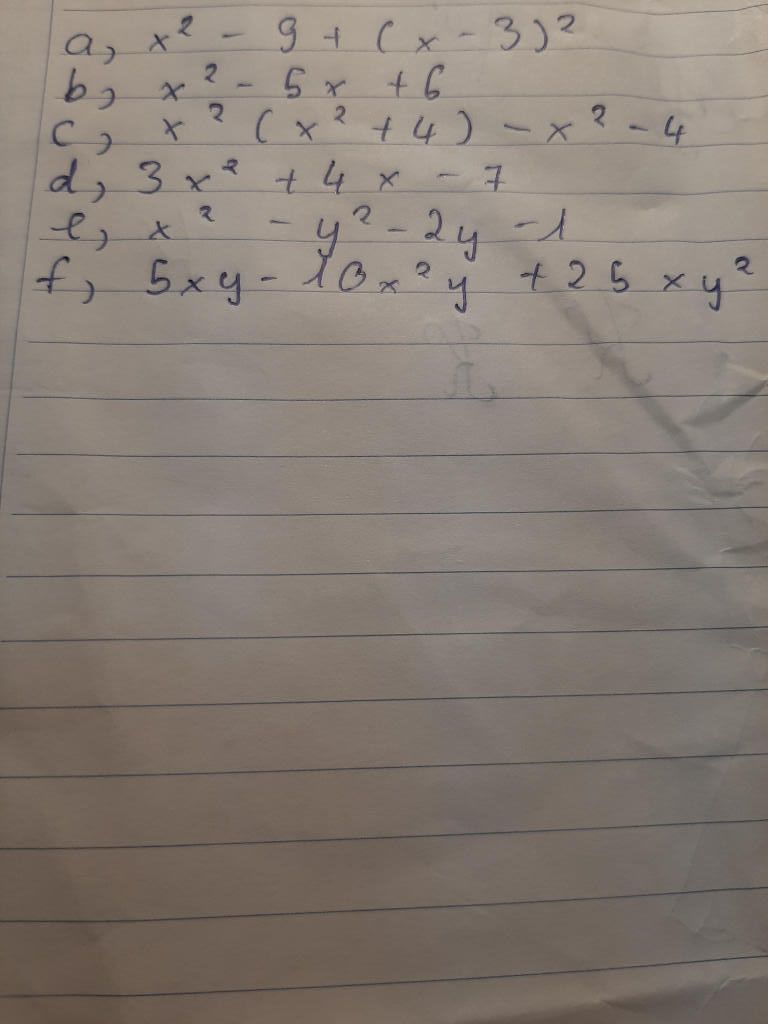 a, x² - 9 + (x - 3)²
b, x² - 5x + 6
c, x² (x² + 4) - x² - 4
d, 3x² + 4x - 7
e, x² - y² - 2y - 1
f, 5xy - 10x²y + 25xy²